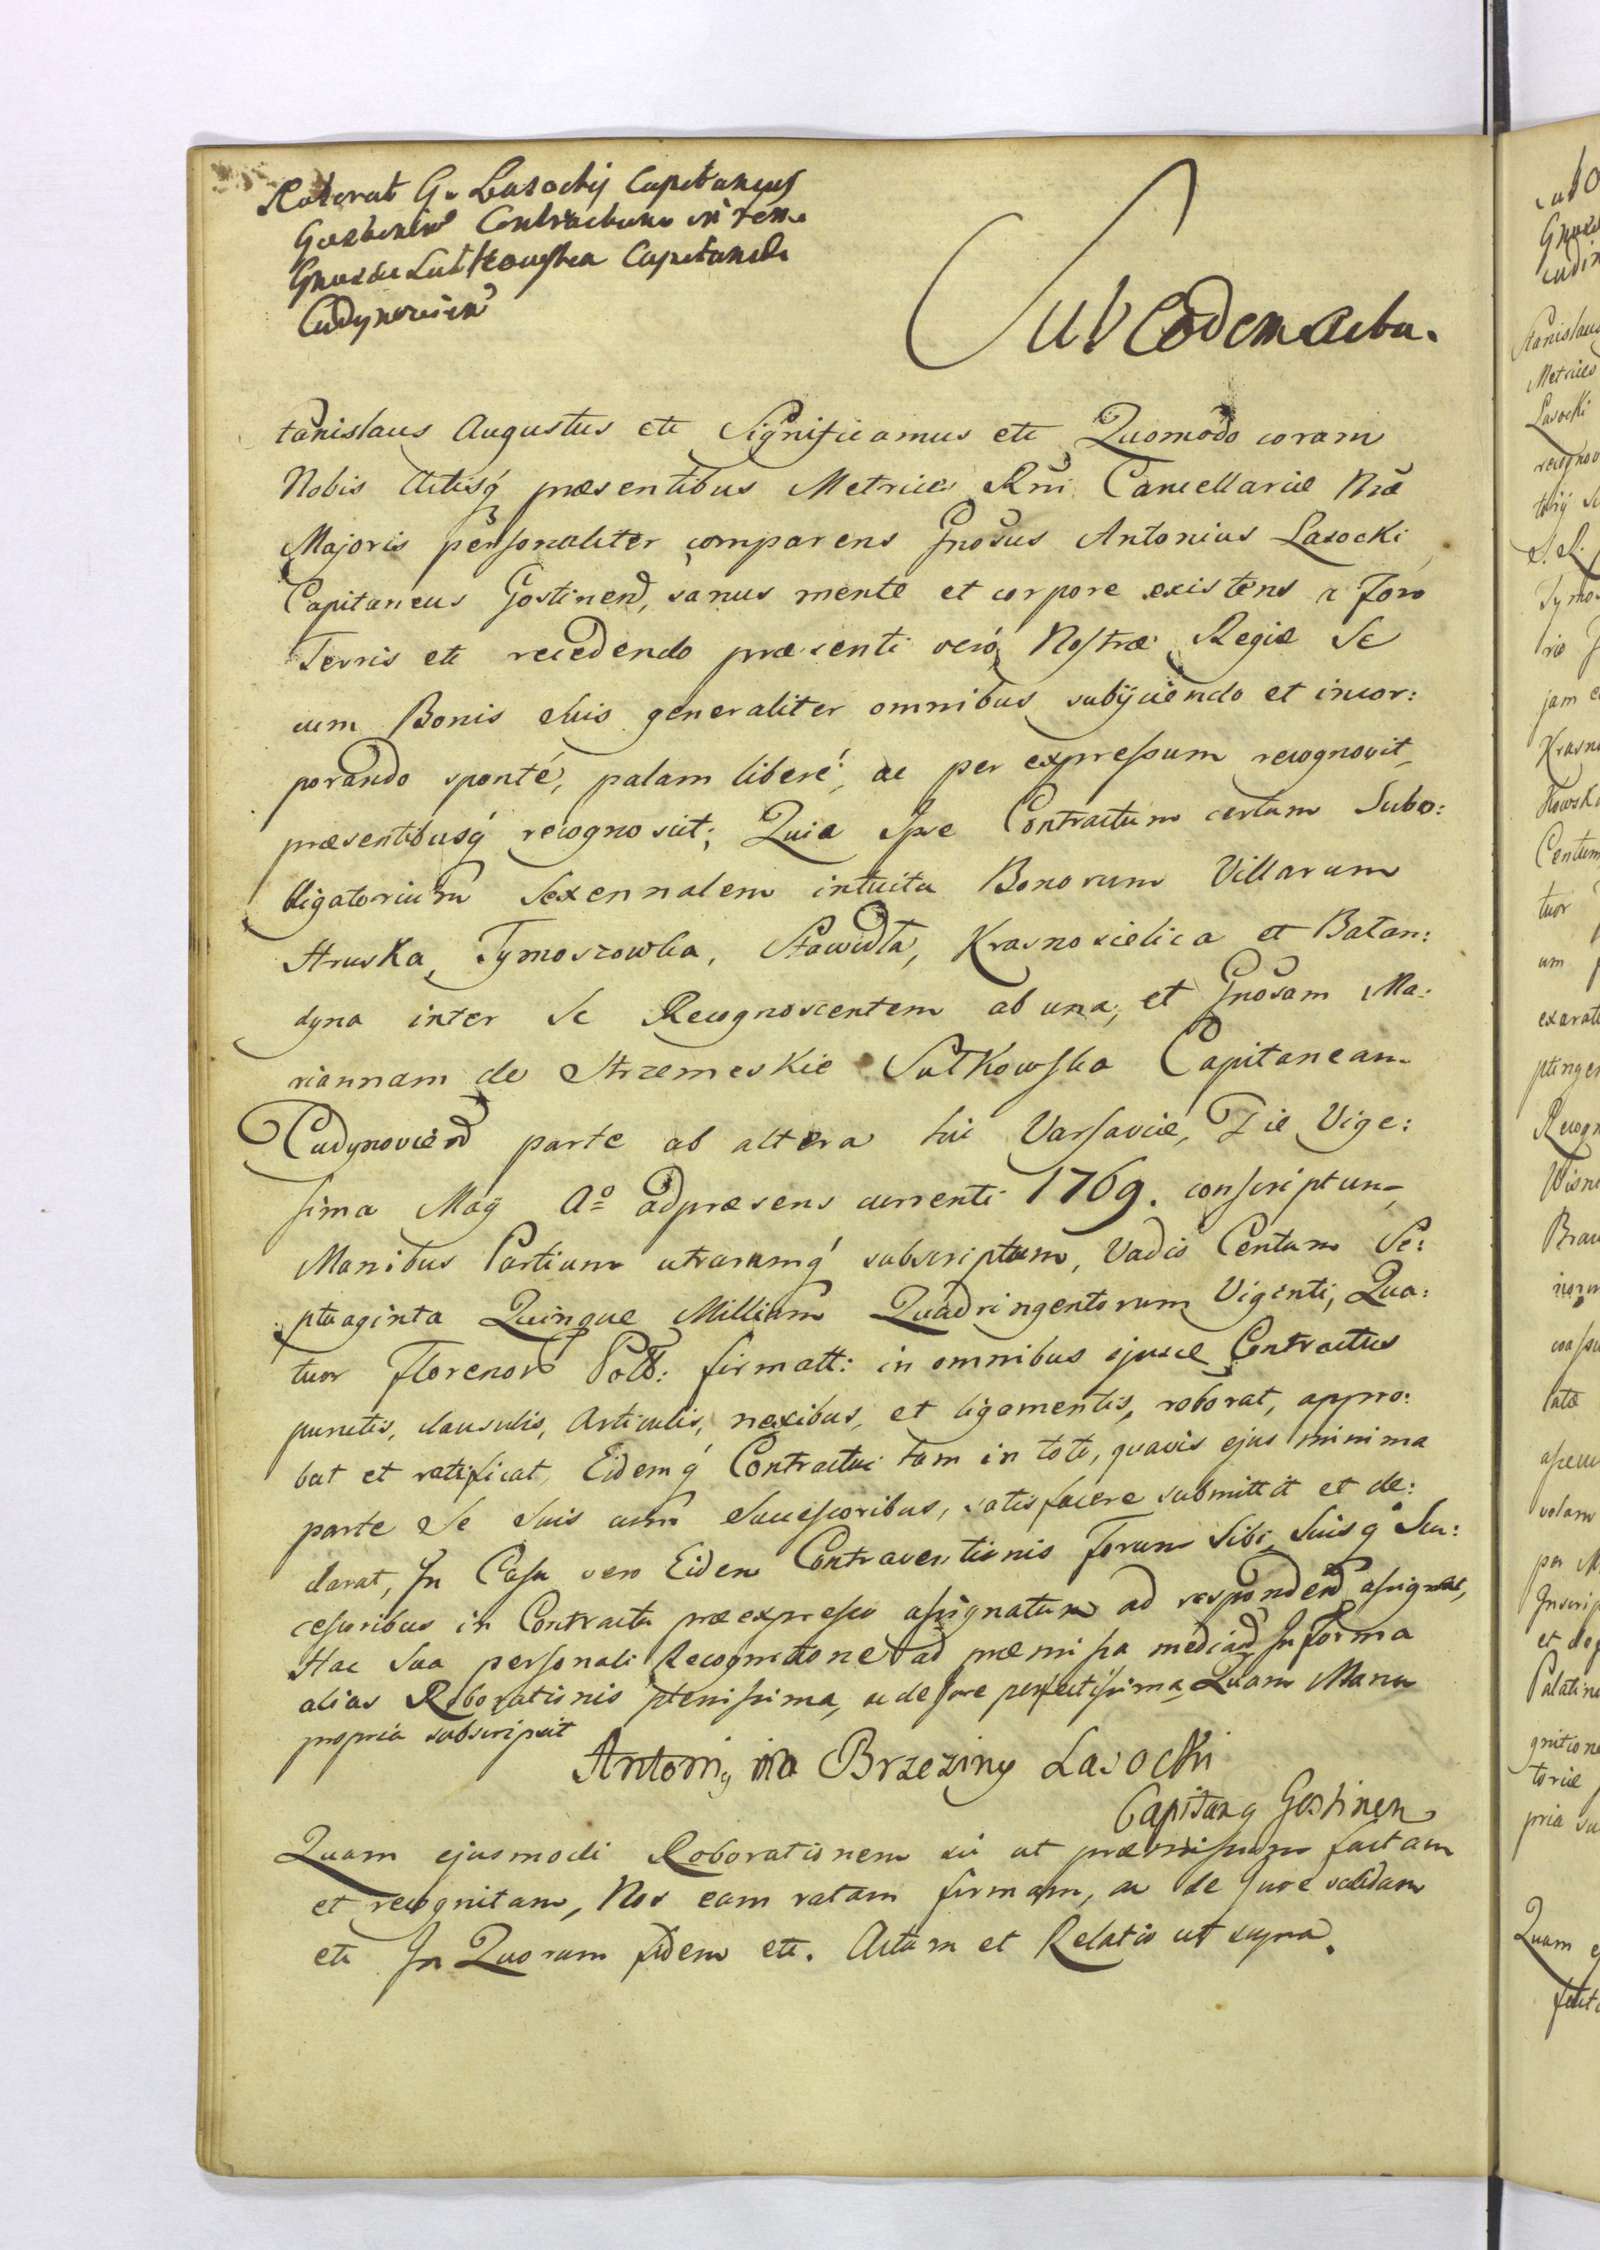 Roborat G. Lasocki Capitaneus
Gostinen Contractum in rem
Gnosae Sutkowska Capitaneae
Cudynovien
Sub Eodem Actu.
Stanislaus Augustus etc Significamus etc Quomodo coram
Nobis Actisq́ præsentibus Metrices Rni Cancellariæ Nræ
Majoris personaliter comparens Gnosus Antonius Lasocki
Capitaneus Gostinen, sanus mente et corpore existens a Foro
Terris etc recedendo præsenti veró Nostræ Regiæ Se
cum Bonis Suis generaliter omnibus subijciendo et incor:
porando sponté, palam liberé, ac per expressum recognovit,
præsentibusq́ recognoscit; Quia Ipse Contractum certum Subo:
bligatorium Sexennalem intuitu Bonorum Villarum
Hruska, Tymoszowka, Stawidła, Krasnosielica et Bałan:
dyna inter Se Recognoscentem ab una, et Gnosam Ma:
riannam de Strzemeskie Sutkowska Capitaneam
Cudynovien parte ab altera hic Varsaviæ, Die Vige:
sima Maÿ Aº adpræsens currenti 1769. conscriptum,
Manibus Partium utrarumq́ subscriptum, Vadio Centum Se:
ptuaginta Quinque Millium Quadringentorum Viginti, Qua:
tuor Florenor Poll: firmatt: in omnibus ejusce Contractus
punctis, clausulis, Articulis, nexibus, et ligamentis, roborat, appro:
bat et ratificat, Eidemq́ Contractui tam in toto, quavis ejus minima
parte Se Suis cum Successoribus, satisfacere submittit et de:
clarat, In Casu vero Eidem Contraventionis Forum Sibi, Suisq́ Suc:
cessoribus in Contractu præexpresso assignatum ad responden assignat,
Hac Sua personali Recognitione ad præmissa median In Forma
alias Roborationis plenissima, ac de Jure perfectissima, Quam Manu
propria subscripsit
Antoni na Brzeziny Lasocki
Capitang Gostinen
Quam ejusmodi Roborationem sic ut præmissum factam
et recognitam, Nos eam ratam firmam, ac de Jure validam
etc In Quorum fidem etc. Actum et Relatio ut supra.